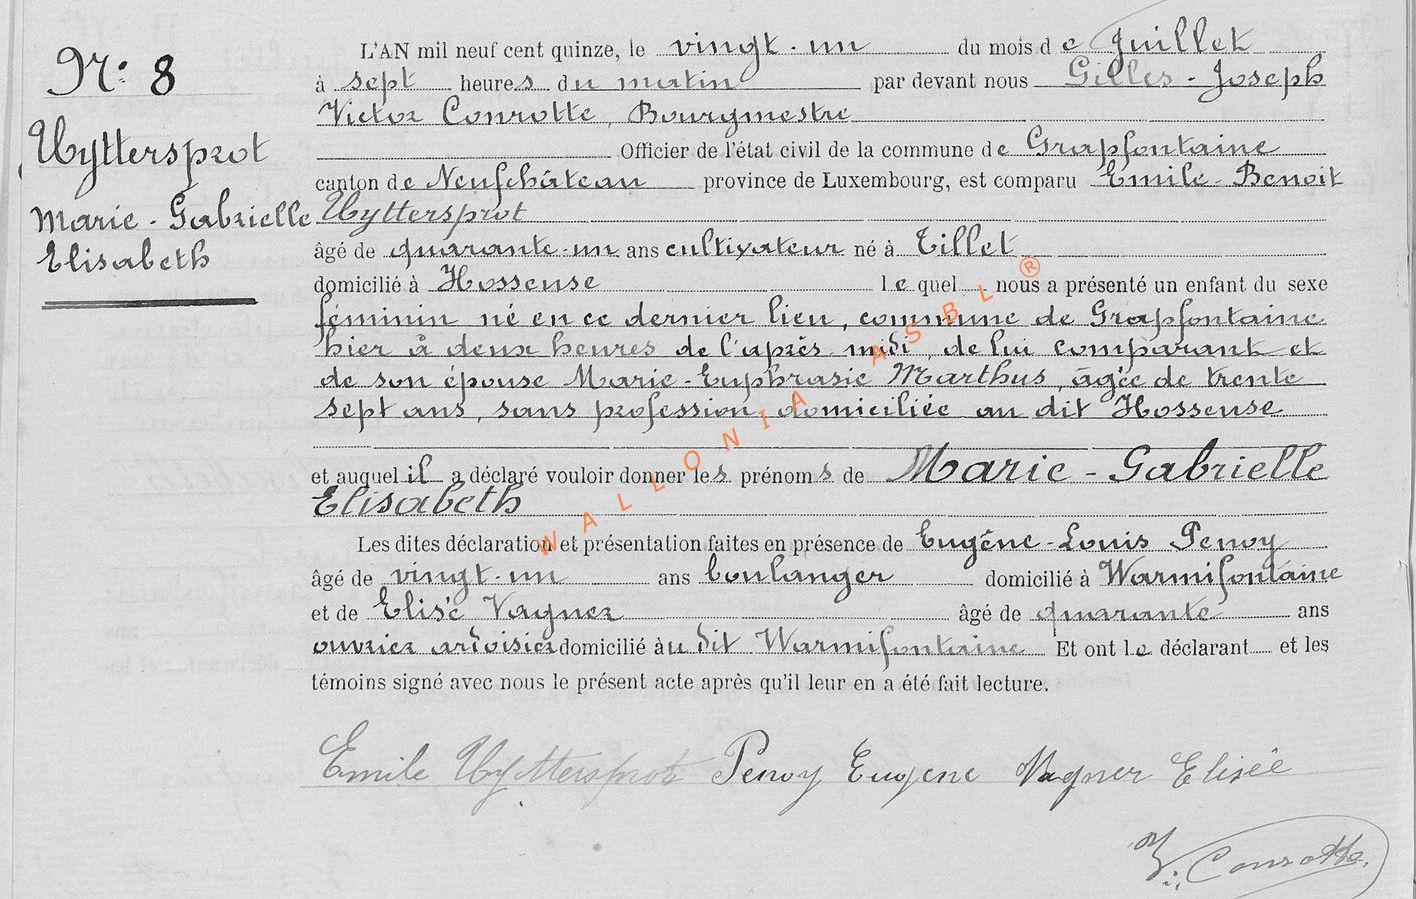 N°: 8
Uyttersprot
Marie - Gabrielle
Elisabeth
L'AN mil neuf cent quinze, le vingt-un du mois de Juillet
à sept heures du matin par devant nous Gilles-Joseph
Victor Conrotte, Bourgmestre
Officier de l'état civil de la commune de Grapfontaine
canton de Neufchâteau province de Luxembourg, est comparu Emile-Benoit
Uyttersprot
âgé de quarante-un ans cultivateur né à Tillet
domicilié à Hosseuse lequel nous a présenté un enfant du sexe
féminin né en ce dernier lieu, commune de Grapfontaine
hier à deux heures de l'après midi, de lui comparant et
de son épouse Marie-Euphrasie Marthus, âgée de trente
sept ans, sans profession, domiciliée au dit Hosseuse
et auquel il a déclaré vouloir donner les prénoms de Marie - Gabrielle
Elisabeth
Les dites déclaration et présentation faites en présence de Eugène-Louis Penoy
âgé de vingt-un ans boulanger domicilié à Warmifontaine
et de Elisé Vagner âgé de quarante ans
ouvrier ardoisier domicilié àu dit Warmifontaine Et ont le déclarant et les
témoins signé avec nous le présent acte après qu'il leur en a été fait lecture.
Emile Uyttersprot Penoy Eugene Vagner Elisée
V. Conrotte.
WALLONIA ASBL ®